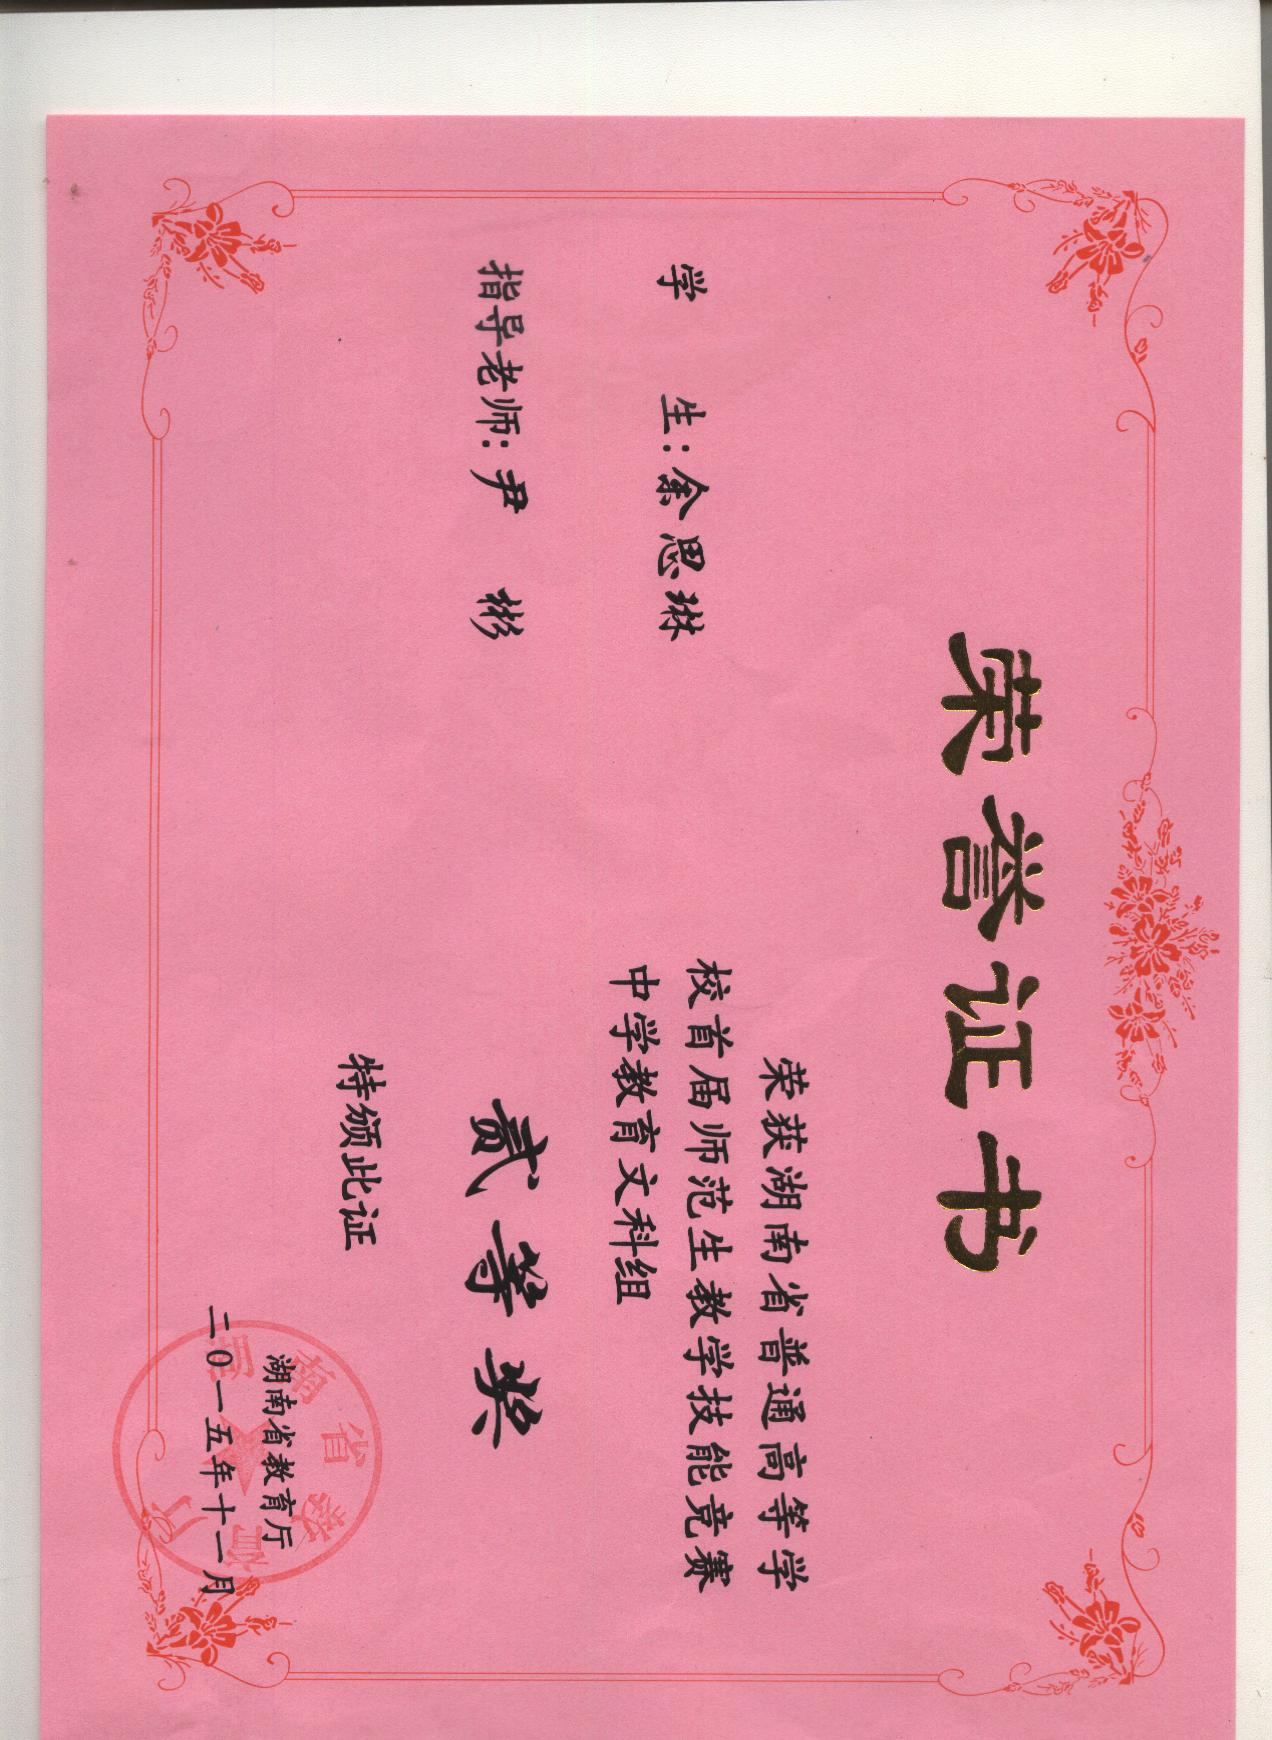 荣誉证书
学 生：余思琳
指导老师：尹 彬
荣获湖南省普通高等学
校首届师范生教学技能竞赛
中学教育文科组
贰等奖
特颁此证
湖南省教育厅
二0一五年十一月
湖南省教育厅